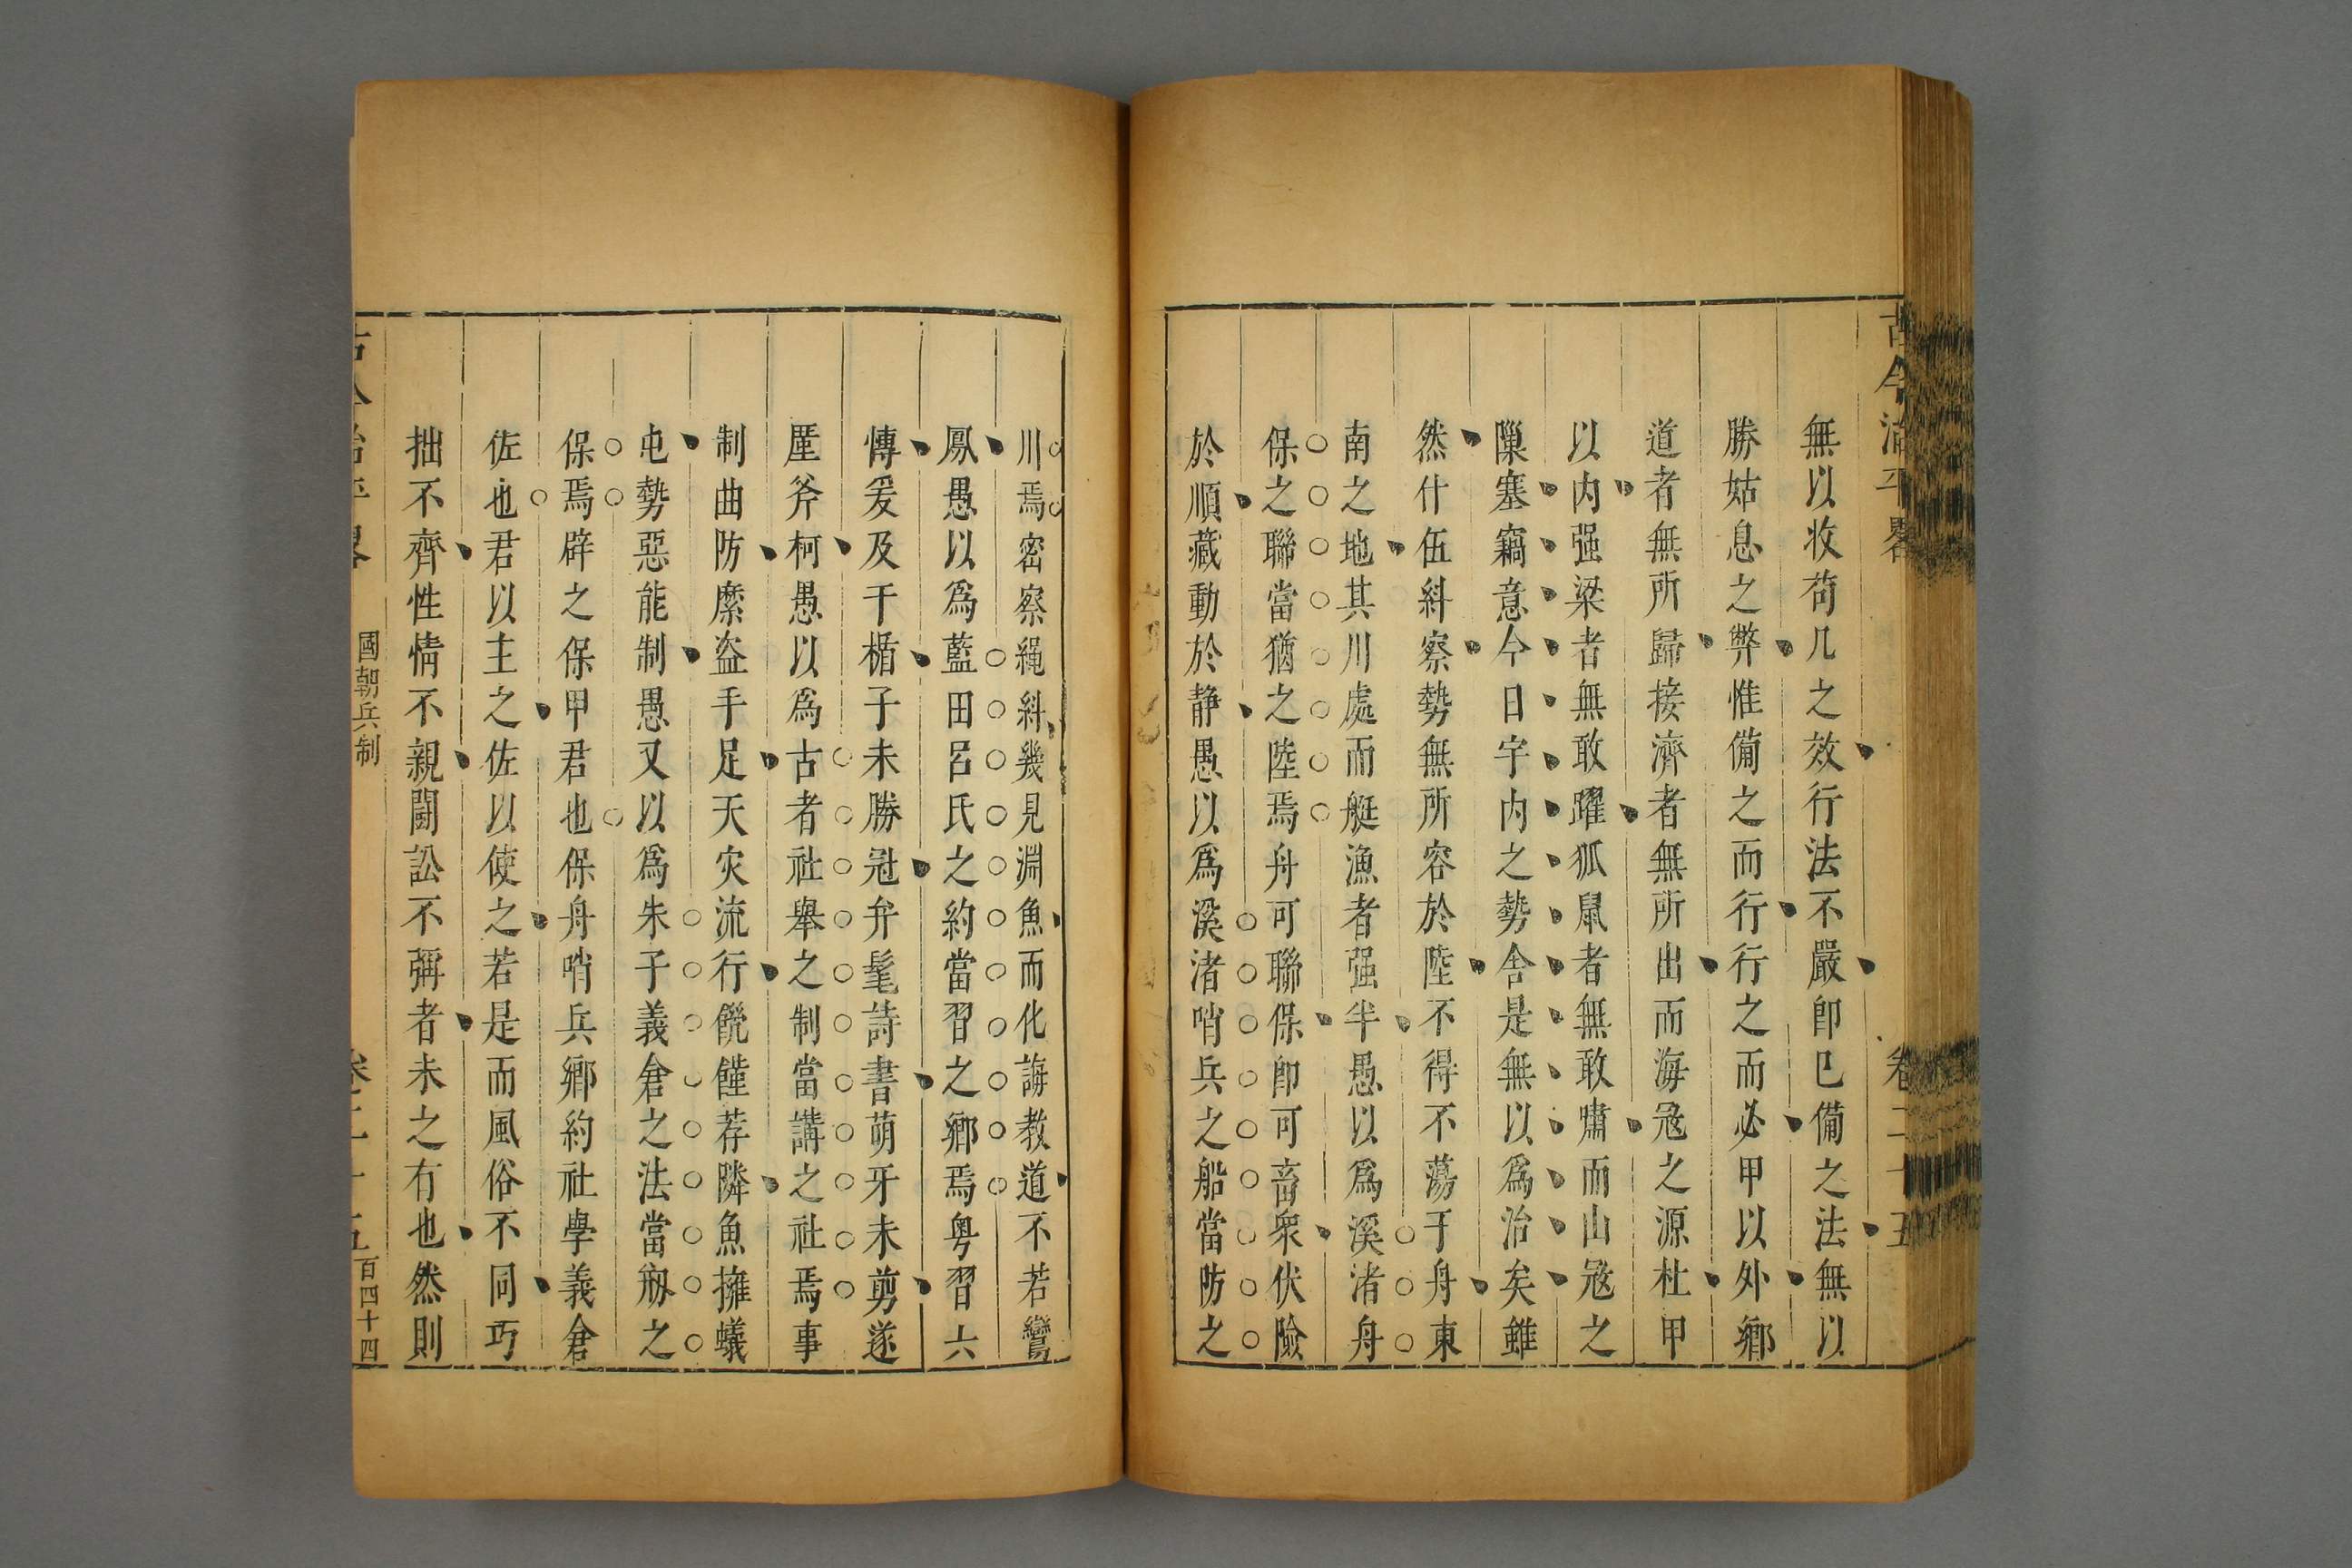 古今治平畧 卷二十五
無以收苟几之效行法不嚴卽巳備之法無以
勝姑息之弊惟備之而行行之而必甲以外鄉
道者無所歸接濟者無所出而海冦之源杜甲
以内强梁者無敢躍狐鼠者無敢嘯而山冦之
隟塞竊意今日宇内之勢舎是無以爲治矣雖
然什伍糾察勢無所容於陸不得不蕩于舟東
南之地其川處而艇漁者强半愚以爲溪渚舟
保之聯當猶之陸焉舟可聯保卽可畜衆伏險
於順藏動於静愚以爲溪渚哨兵之船當防之
川焉密察繩糾幾見淵魚而化誨教道不若鸞
鳳愚以爲藍田呂氏之約當習之鄉焉粤習六
傳爰及干楯子未勝冠弁髦詩書萌牙未剪遂
壓斧柯愚以爲古者社舉之制當講之社焉事
制曲防縻盜手足天灾流行饑饉荐隣魚擁蟻
屯勢惡能制愚又以爲朱子義倉之法當剏之
保焉辟之保甲君也保舟哨兵鄉約社學義倉
佐也君以主之佐以使之若是而風俗不同巧
拙不齊性情不親鬪訟不弭者未之有也然則
古今治平畧 國朝兵制 卷二十五 百四十四